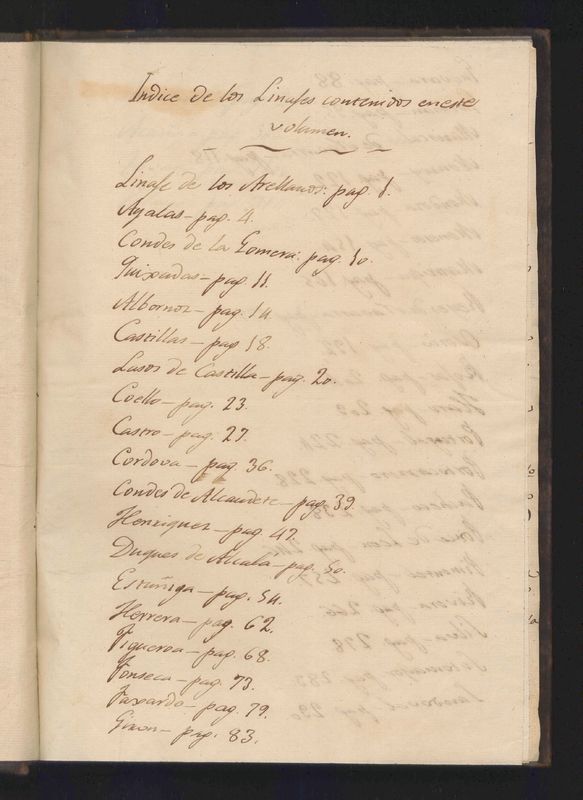 Indice de los Linajes contenidos en este
volumen.
Linaje de los Arellanos: pag. 1.
Ayalas - pag. 4.
Condes de la Gomera: pag. 10.
Quixadas - pag. 11.
Albornoz - pag. 14
Castillas - pag 18.
Lasos de Castilla - pag. 20.
Coello - pag. 23.
Castro - pag. 27.
Cordova - pag. 36.
Condes de Alcaudete - pag. 39.
Henriquez - pag. 47.
Duques de Alcala - pag. 50.
Estuñiga - pag. 54.
Herrera - pag. 62.
Figueroa - pag. 68.
Fonseca - pag. 73.
Faxardo - pag. 79.
Giron - pag. 83.